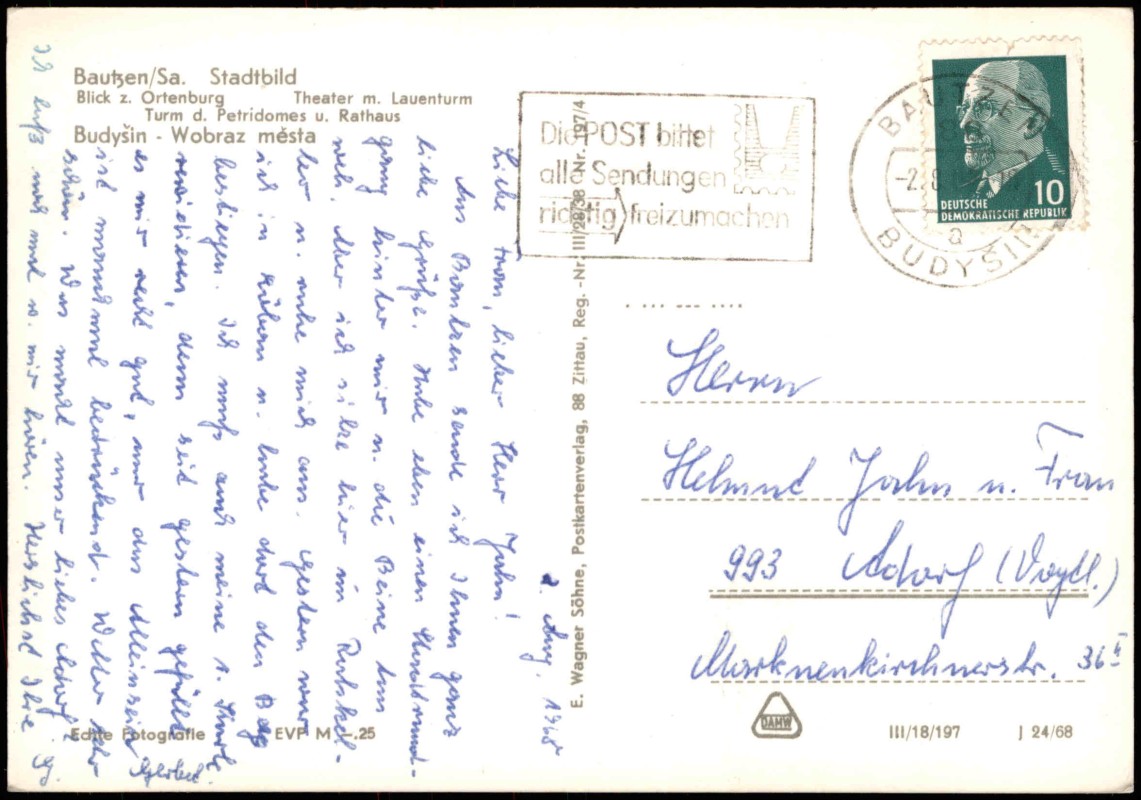 Bautzen/Sa. Stadtbild
Blick z. Ortenburg Theater m. Lauenturm
Turm d. Petridomes u. Rathaus
Budyšin - Wobraz města
Die POST bittet
alle Sendungen
richtig freizumachen
BAUTZEN
BUDYŠIN
a
10
DEUTSCHE
DEMOKRATISCHE REPUBLIK
2. Aug. 1968
Liebe Frau, lieber Herr Jahn!
Aus Bautzen sende ich Ihnen ganz
liebe Grüße. Habe eben einen
gang hinter mir u. die Beine tun
weh. Aber ich sitze hier im
ler u. ruhe mich aus. Gestern war
ich in u. habe dort den Berg
bestiegen. Ich muß auch meine
revidieren, denn seit gestern gefällt
es mir recht gut, nur das Alleinsein
ist manchmal bedrückend. Wetter sehr
schön. Was macht unser liebes Adorf?
Ich laß mal was v. mir hören. Herzlichst Ihre
E. Wagner Söhne, Postkartenverlag, 88 Zittau, Reg. -Nr. III/28/38 Nr. 197/4
Herrn
Helmut Jahn u. Frau
993 Adorf (Vogtl.)
Markneukirchnerstr. 36
Echte Fotografie EVP M -.25
DAMW
III/18/197 J 24/68